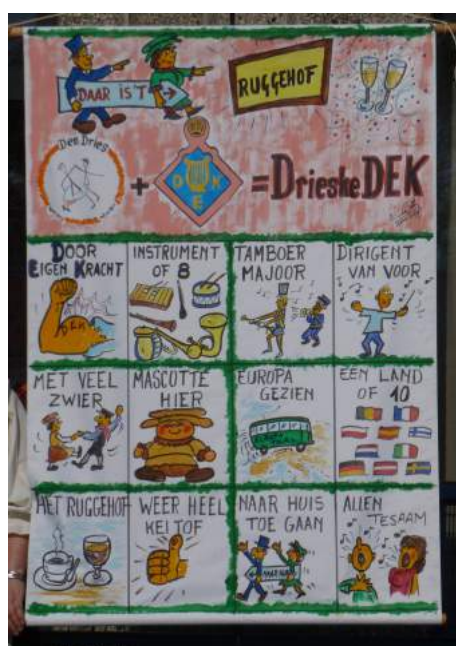 DAAR IS'T
RUGGEHOF
Den Dries
+
D K
E
= Drieske DEK
DOOR
EIGEN KRACHT
DEK
INSTRUMENT
OF 8
TAMBOER
MAJOOR
DIRIGENT
VAN VOOR
MET VEEL
ZWIER
MASCOTTE
HIER
EUROPA
GEZIEN
EEN LAND
OF 10
HET RUGGEHOF
WEER HEEL
KEITOF
NAAR HUIS
TOE GAAN
ALLEN
TESAAM